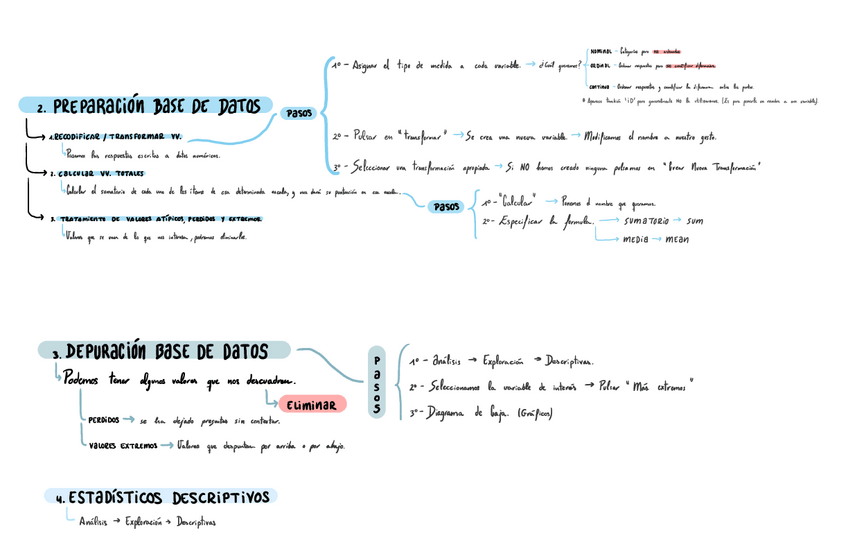 2. PREPARACIÓN BASE DE DATOS
1. RECODIFICAR / TRANSFORMAR VV.
Pasamos las respuestas escritas a datos numéricos.
2. CALCULAR VV. TOTALES
Calcular el sumatorio de cada uno de los ítems de esa determinada escala, y nos dará su puntuación en esa escala...
3. TRATAMIENTO DE VALORES ATÍPICOS, PERDIDOS Y EXTREMOS
Valores que se van de lo que nos interesa, podremos eliminarlos.
PASOS
1º - Asignar el tipo de medida a cada variable. → ¿Cuál queremos?
NOMINAL - Categorías pero no ordenadas
ORDINAL - Ordenar respuestas pero no cuantificar diferencias
CONTINUO - Ordenar respuestas y cuantificar la diferencia entre las partes
2º - Pulsar en "transformar" → Se crea una nueva variable → Modificamos el nombre a nuestro gusto.
3º - Seleccionar una transformación apropiada → Si NO hemos creado ninguna pulsamos en "Crear Nueva Transformación"
PASOS
1º - "Calcular" → Ponemos el nombre que queramos.
2º - Especificar la formula. → SUMATORIO → SUM
→ MEDIA → MEAN
3. DEPURACIÓN BASE DE DATOS
Podemos tener algunos valores que nos descuadran.
ELIMINAR
PERDIDOS → se ha dejado preguntas sin contestar.
VALORES EXTREMOS → Valores que despuntan por arriba o por abajo.
PASOS
1º - Análisis → Exploración → Descriptivas.
2º - Seleccionamos la variable de interés → Pulsar "Más extremos"
3º - Diagrama de Caja. (Gráficos)
4. ESTADÍSTICOS DESCRIPTIVOS
Análisis → Exploración → Descriptivas